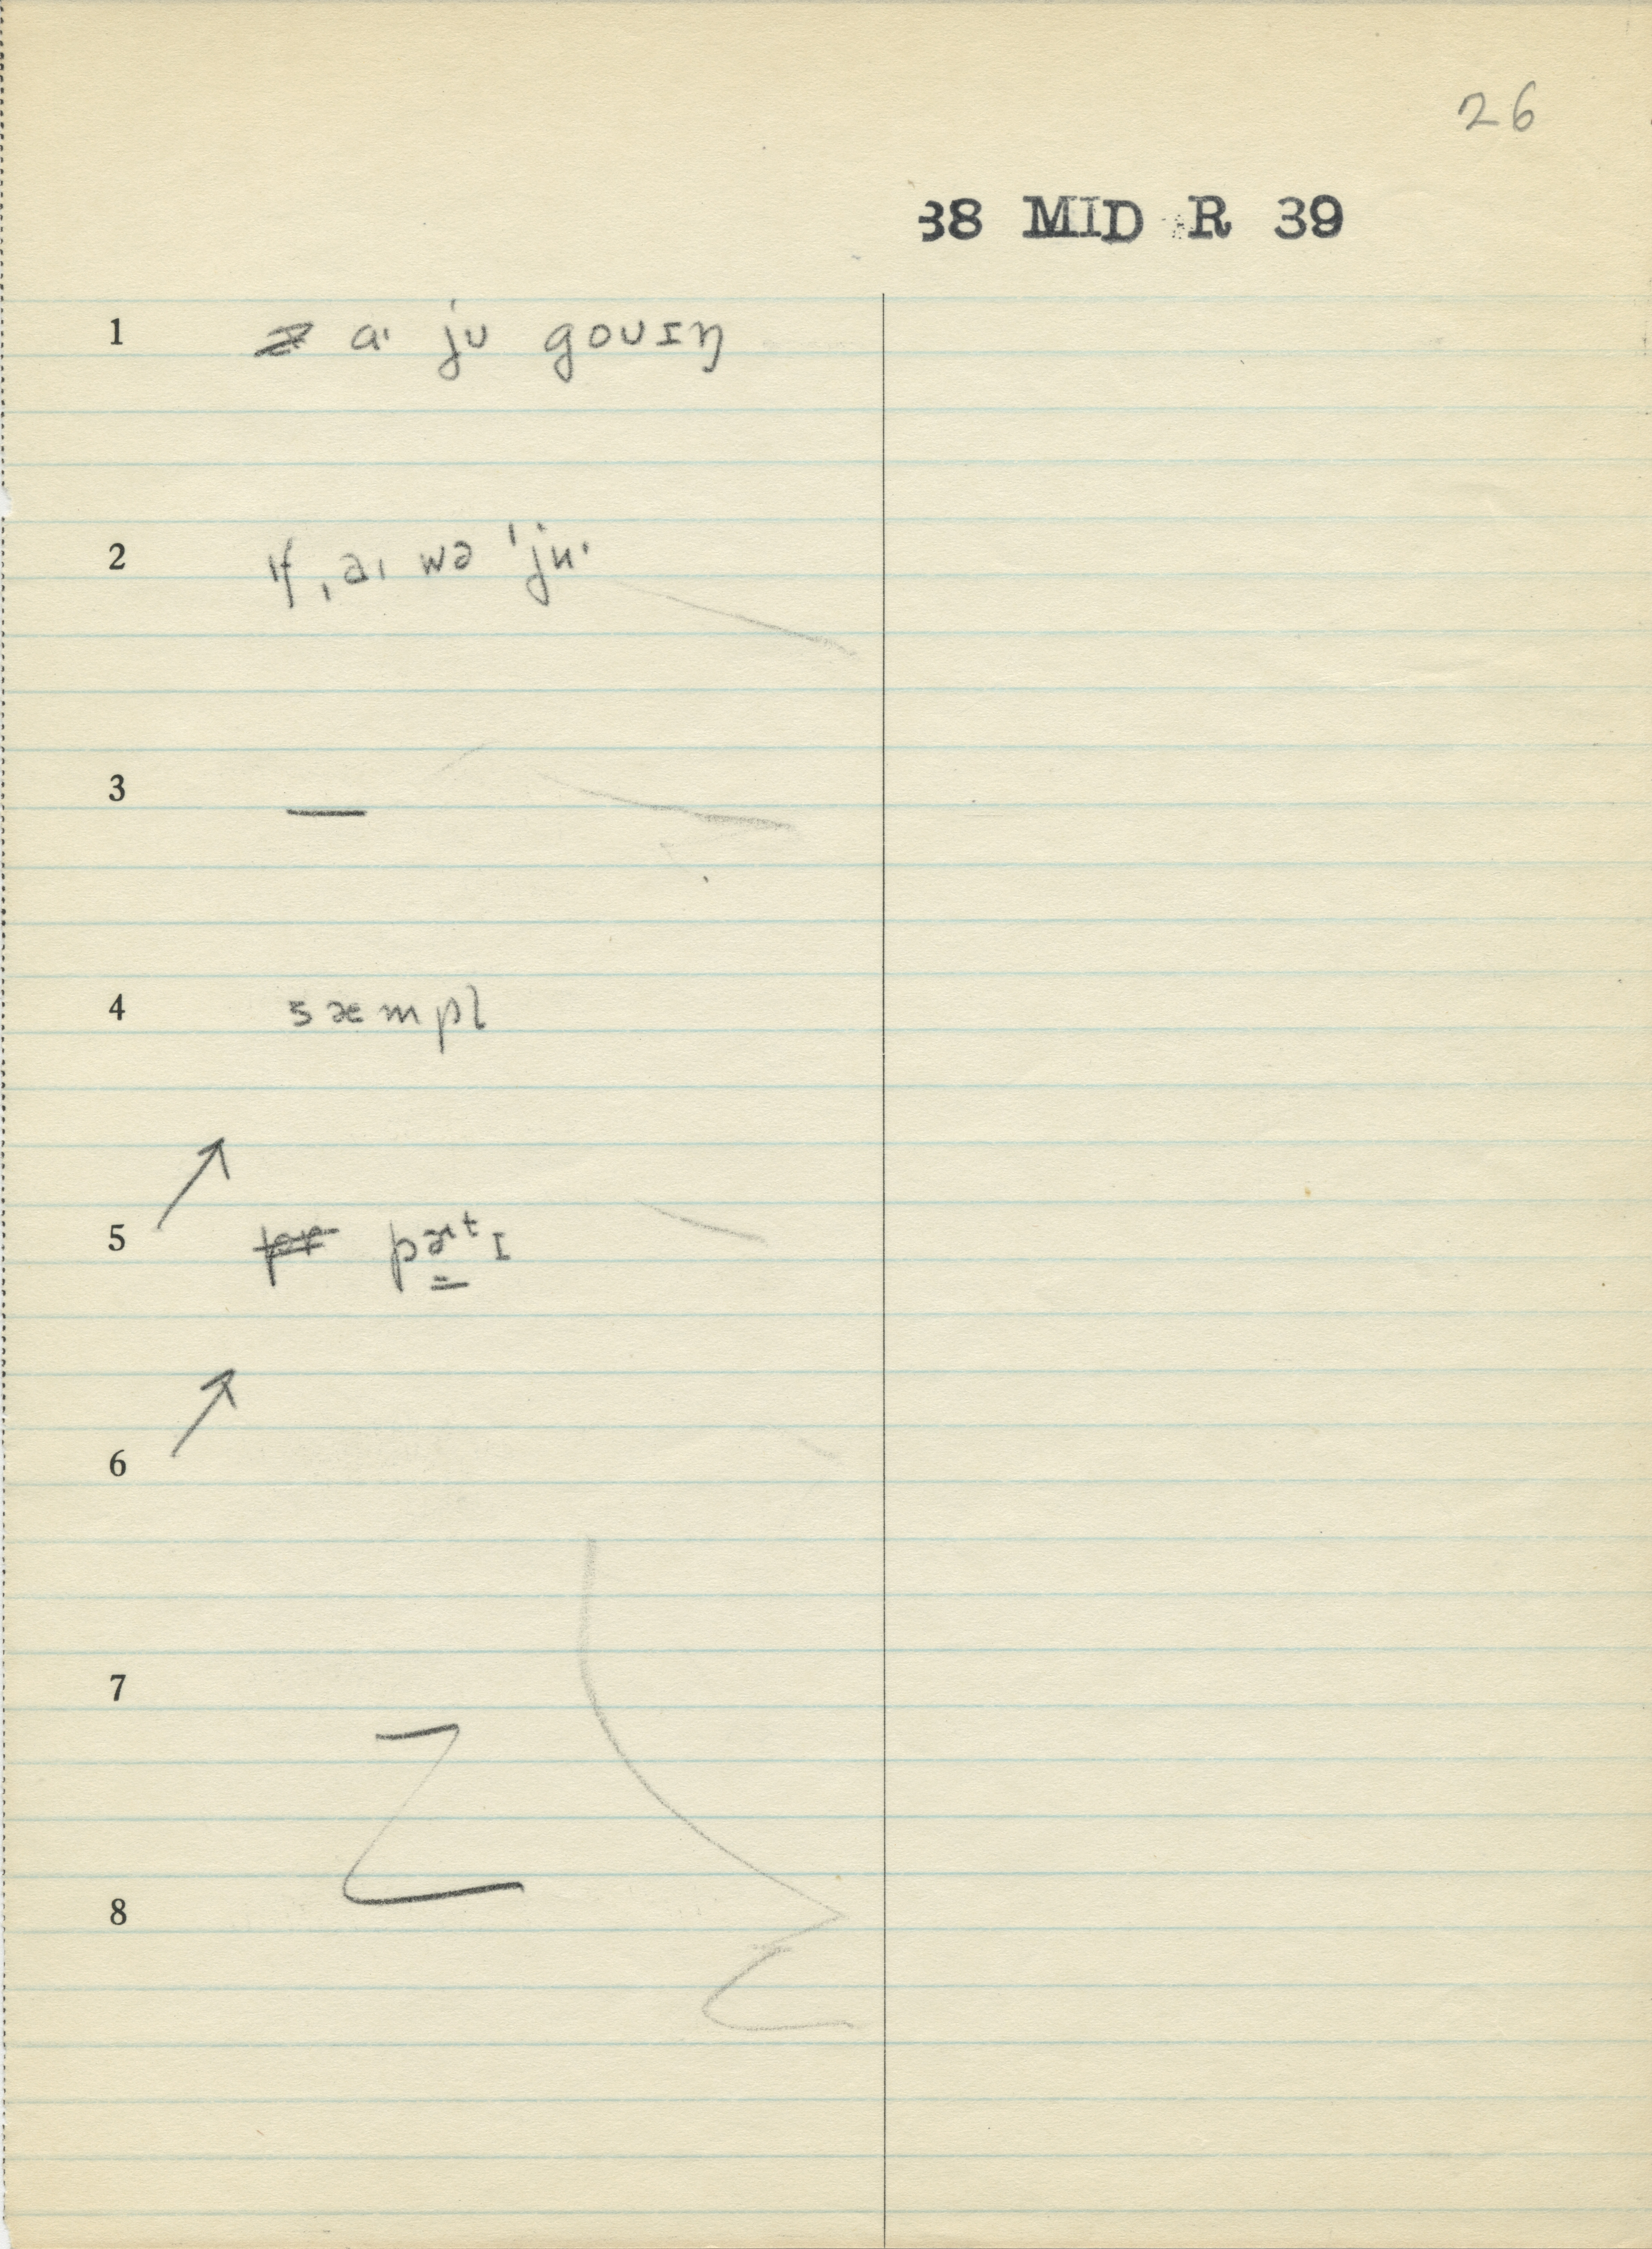 26
38 MID R 39
1 aˈ ju gouɪŋ
2 ɪf ˌaɪ wə ˈjuˑ
3 —
4 sæmpl
5 pɚtɪ
6
7
8